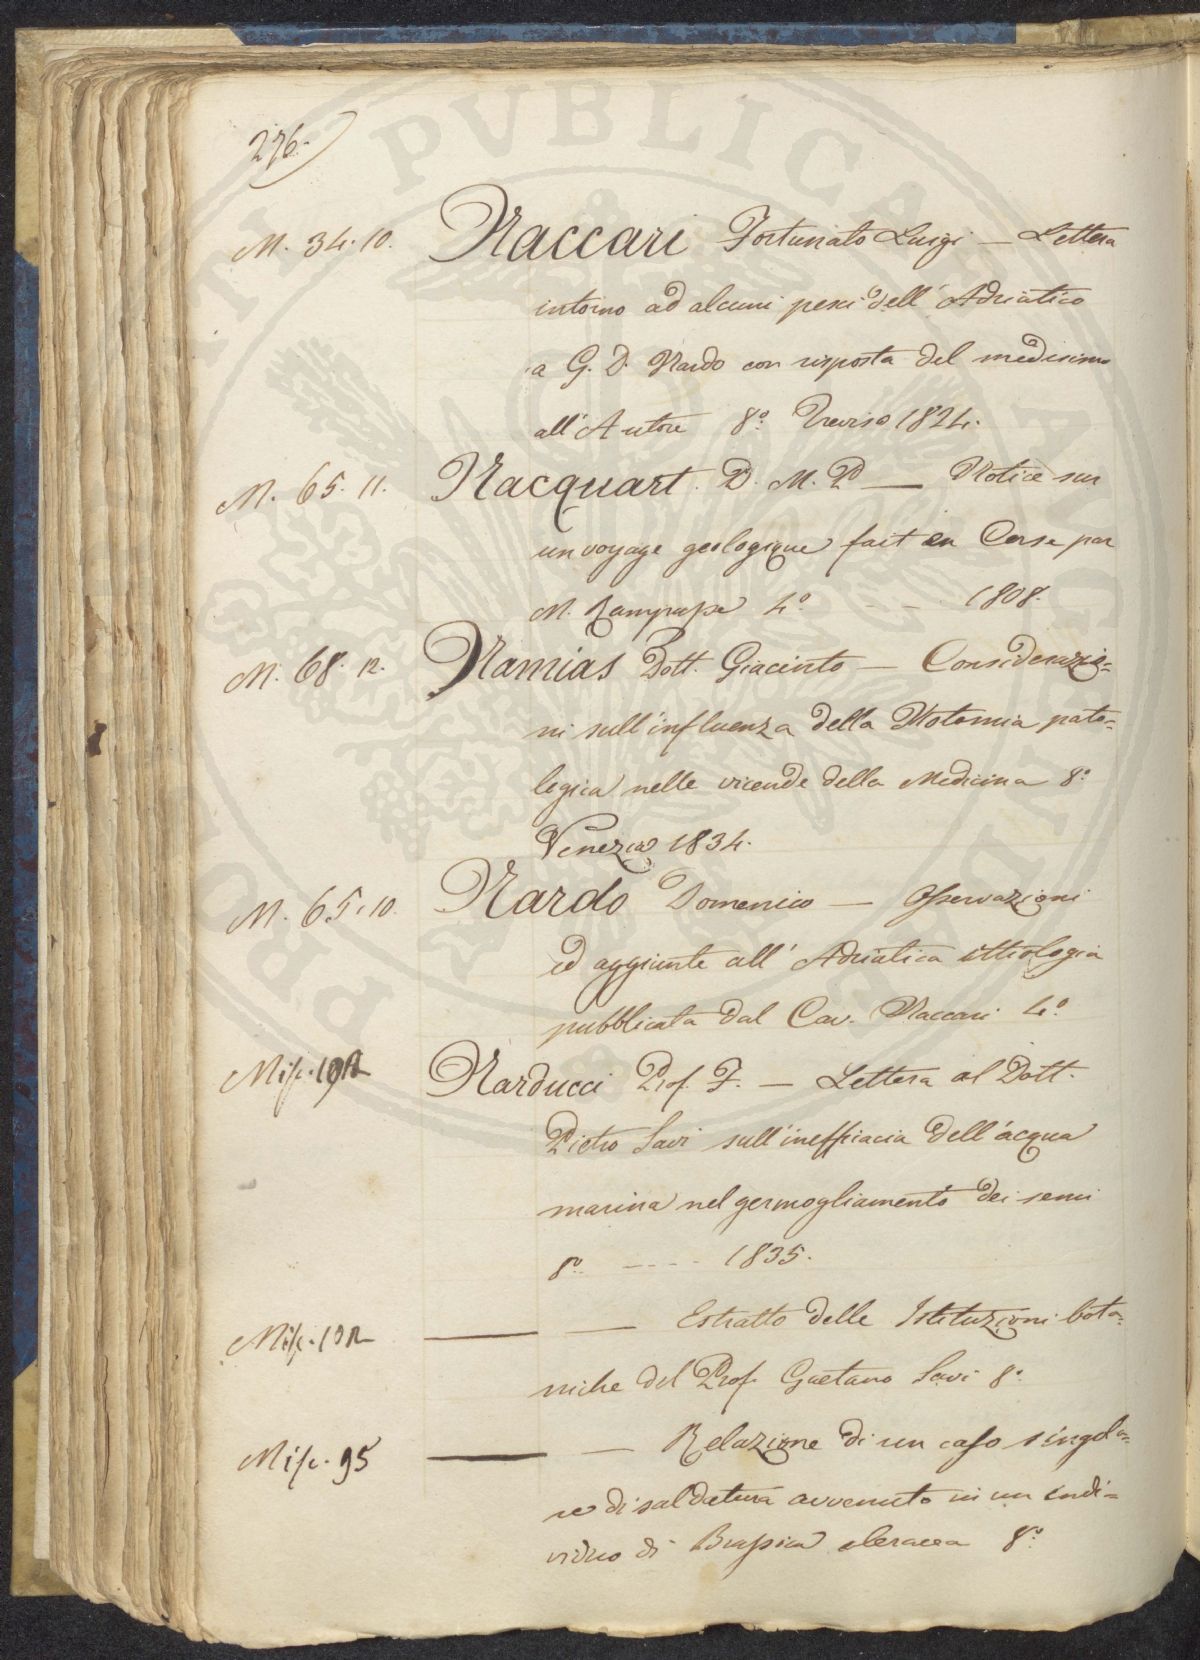 276.
M. 34. 10. Naccari Fortunato Luigi — Lettera
intorno ad alcuni pesci dell'Adriatico
a G. D. Nardo con risposta del medesimo
all'Autore 8.º Treviso 1824.
M. 65. 11. Nacquart. D. M. P — Notice sur
un voyage geologique fait en Corse par
M. Rampasse 4.º - - - 1808.
M. 68. 12. Namias Dott. Giacinto — Considerazio=
ni sull'influenza della Notomia pato=
logica nelle vicende della Medicina 8.º
Venezia 1834.
M. 65. 10. Nardo Domenico — Osservazioni
ed aggiunte all'Adriatica ittiologia
pubblicata dal Cav. Naccari 4.º
Misc. Narducci Prof. F. — Lettera al Dott.
Pietro Savi sull'inefficacia dell'acqua
marina nel germogliamento dei semi
8.º - - - - 1835.
Misc. — — Estratto delle Istituzioni bota=
niche del Prof. Gaetano Savi 8.º
Misc. 95 — — Relazione di un caso singola=
re di saldatura avvenuto in un indi=
viduo di Brassica oleracea 8.º
PUBLICA